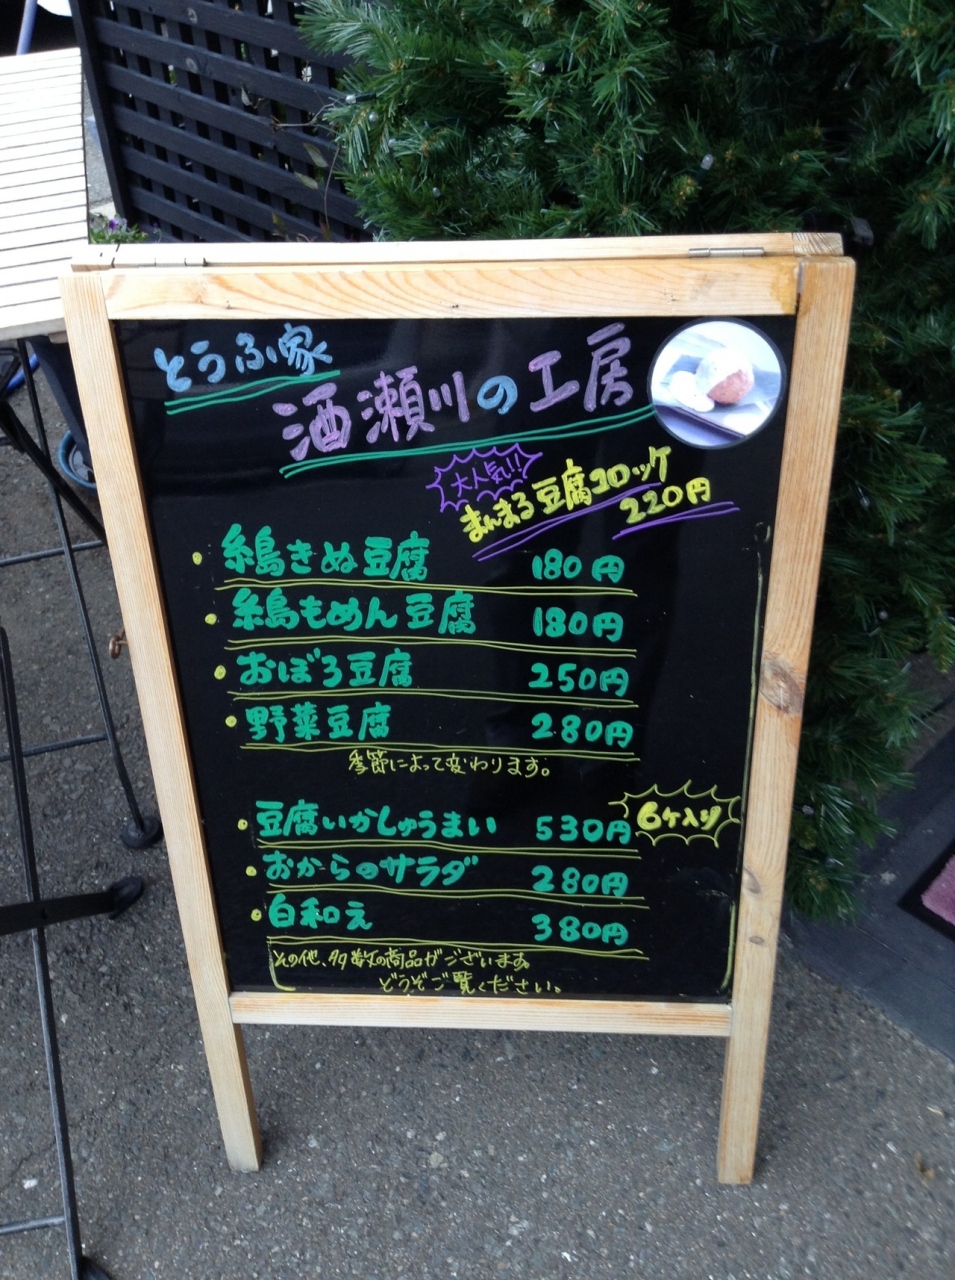 とうふ家
酒瀬川の工房
大人気!!
まんまる豆腐コロッケ
220円
• 糸島きぬ豆腐 180円
• 糸島もめん豆腐 180円
• おぼろ豆腐 250円
• 野菜豆腐 280円
季節によって変わります。
• 豆腐いかしゅうまい 530円 6ケ入り
• おからのサラダ 280円
• 白和え 380円
その他、多数の商品がございます。
どうぞご覧ください。